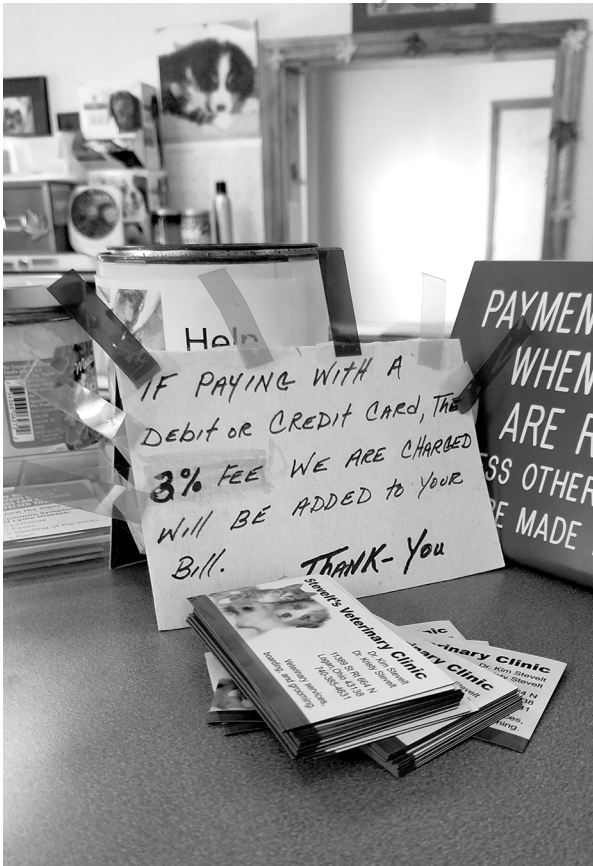 Help
IF PAYING WITH A
DEBIT OR CREDIT CARD, THE
3% FEE WE ARE CHARGED
WILL BE ADDED TO YOUR
BILL. THANK-YOU
PAYMEN
WHEN
ARE R
SS OTHER
E MADE
Stevelt's Veterinary Clinic
Dr. Kim Stevelt
Dr. Kristy Stevelt
11369 St Rt 664 N
Logan, Ohio 43138
740-385-4631
Veterinary services,
boarding, and grooming.
erinary Clinic
Dr. Kim Stevelt
ty Stevelt
nary Clinic